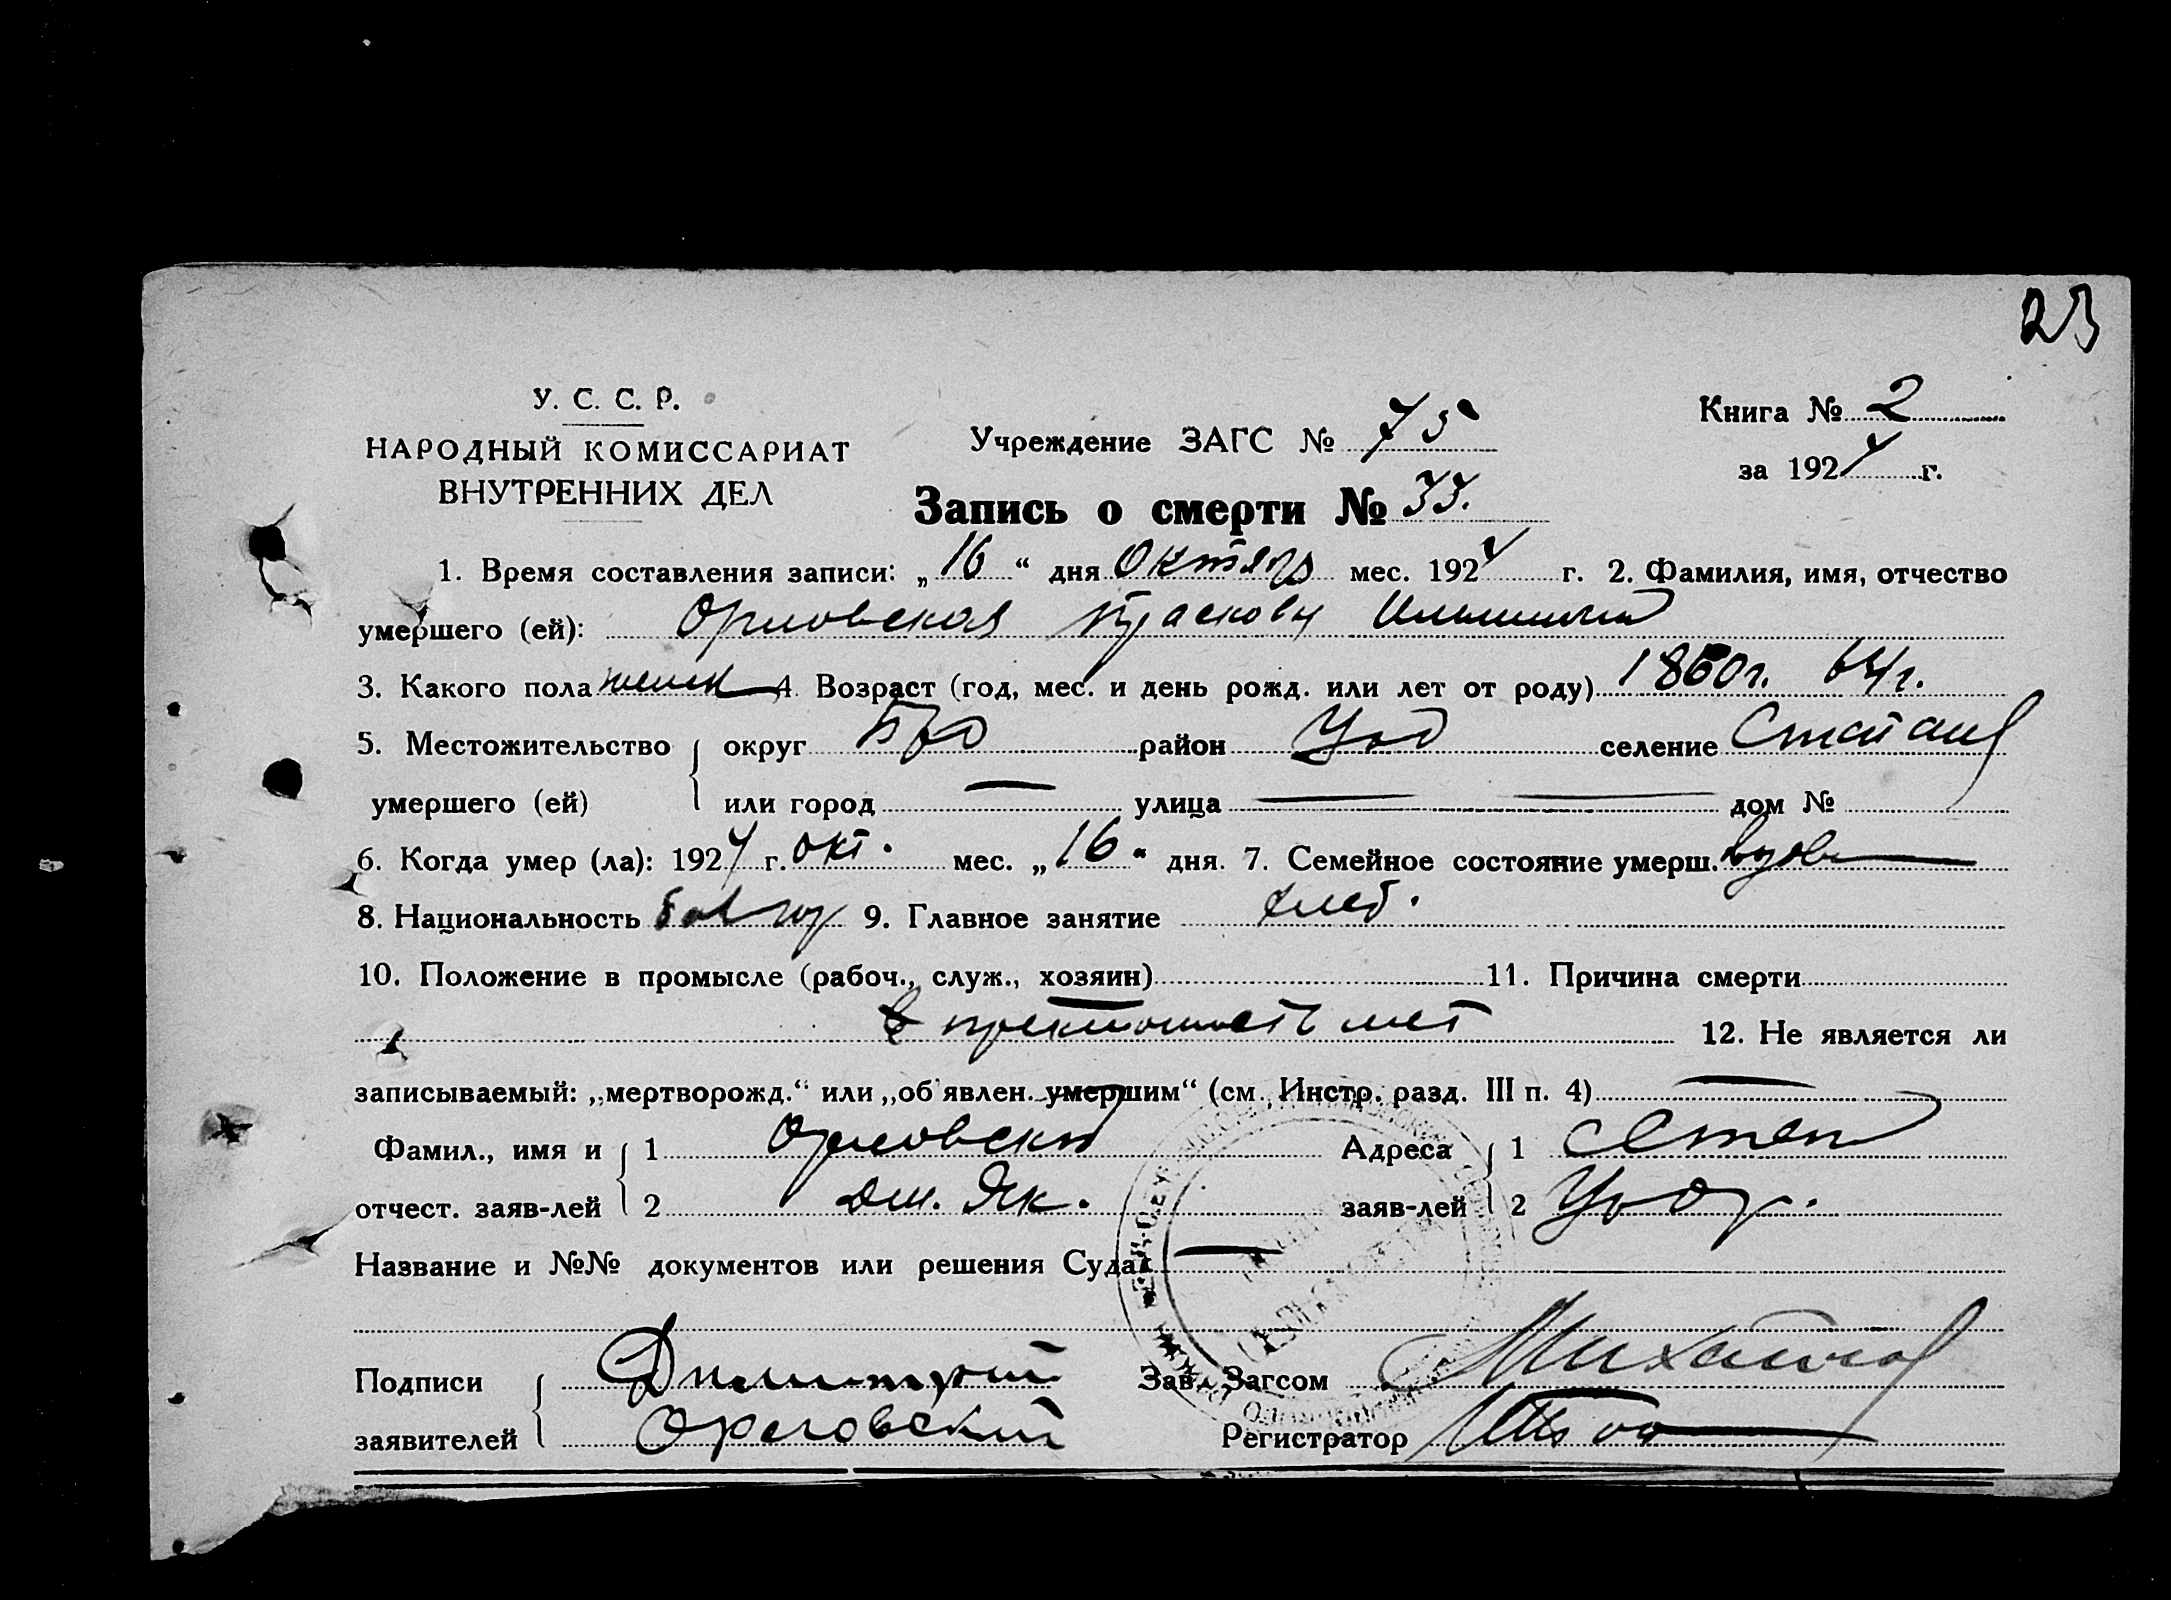 23
У. С. С. Р.
НАРОДНЫЙ КОМИССАРИАТ
ВНУТРЕННИХ ДЕЛ
Учреждение ЗАГС № 75
Книга № 2
за 1924 г.
Запись о смерти № 33.
1. Время составления записи: „16“ дня Октяб мес. 1924 г. 2. Фамилия, имя, отчество
умершего (ей): Орловская
3. Какого пола женск 4. Возраст (год, мес. и день рожд. или лет от роду) 1860г. 64г.
5. Местожительство { округ район селение
умершего (ей) или город — улица — — дом №
6. Когда умер (ла): 1924 г. окт. мес. „16“ дня. 7. Семейное состояние умерш. вдова
8. Национальность 9. Главное занятие хлеб.
10. Положение в промысле (рабоч., служ., хозяин) — 11. Причина смерти
лет 12. Не является ли
записываемый: „мертворожд.“ или „об'явлен. умершим“ (см. Инстр. разд. III п. 4) —
Фамил., имя и { 1 Орловский Адреса { 1
отчест. заяв-лей 2 Дм. Як. заяв-лей 2
Название и №№ документов или решения Суда —
Подписи { Димитрий Зав. Загсом
заявителей Орловский Регистратор